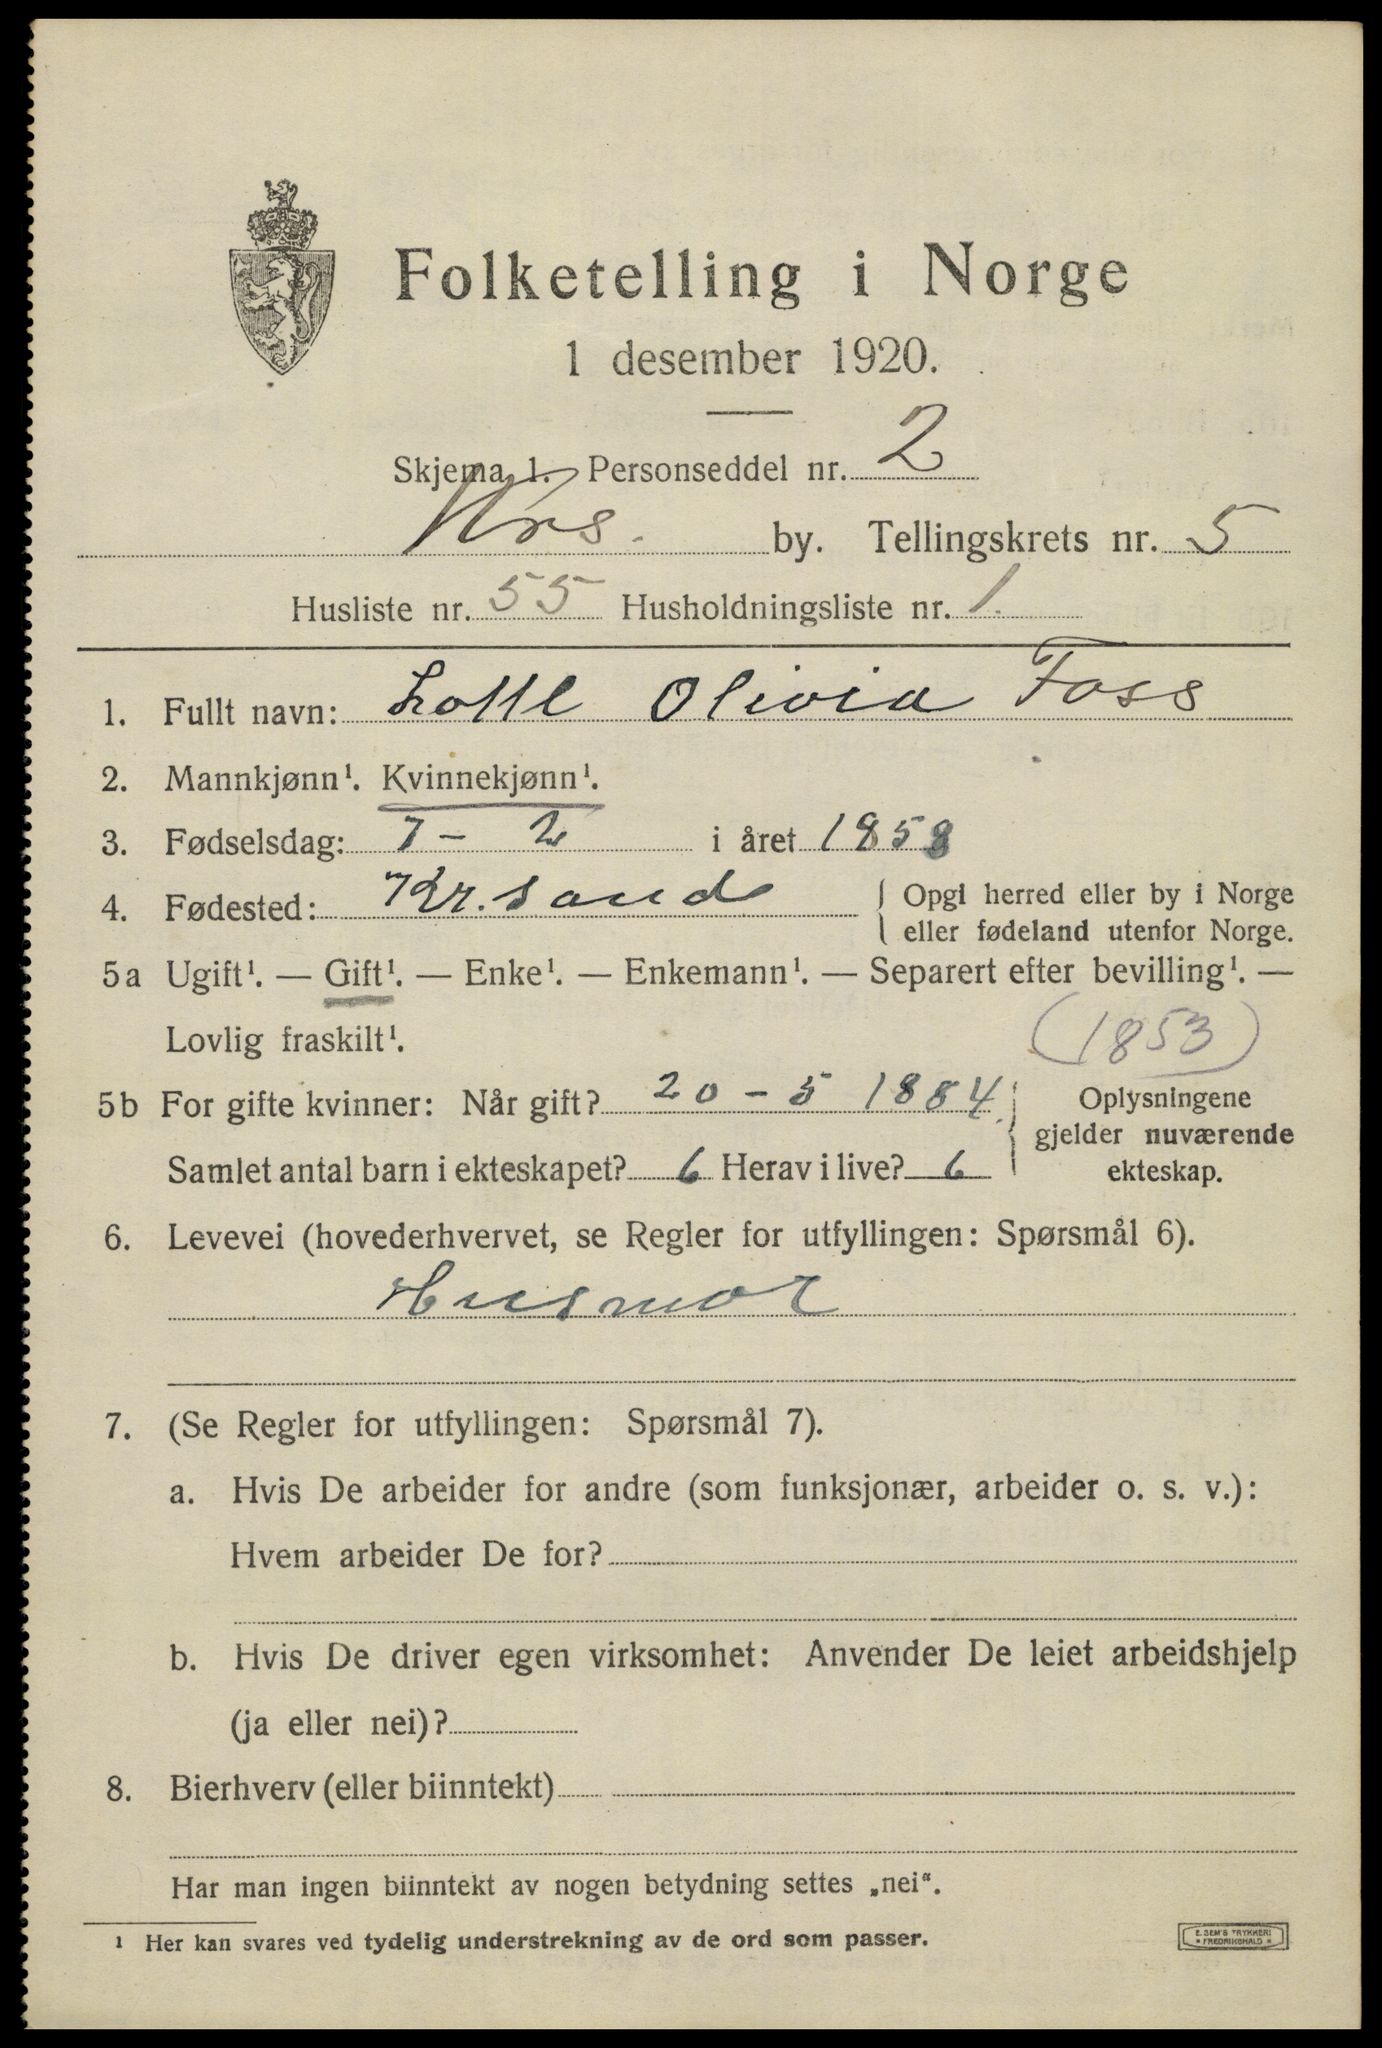 Folketelling i Norge
1 desember 1920.
Skjema 1. Personseddel nr. 2
Krs. by. Tellingskrets nr. 5
Husliste nr. 55 Husholdningsliste nr. 1.
1. Fullt navn: Lotte Olivia Foss
2. Mannkjønn¹. Kvinnekjønn¹.
3. Fødselsdag: 7 - 2 i året 1858
4. Fødested: Kr.sand Opgi herred eller by i Norge
eller fødeland utenfor Norge.
5a Ugift¹. — Gift¹. — Enke¹. — Enkemann¹. — Separert efter bevilling¹. —
Lovlig fraskilt¹.
(1853)
5b For gifte kvinner: Når gift? 20 - 5 1884
Samlet antal barn i ekteskapet? 6 Herav i live? 6
Oplysningene
gjelder nuværende
ekteskap.
6. Levevei (hovederhvervet, se Regler for utfyllingen: Spørsmål 6).
Husmor
7. (Se Regler for utfyllingen: Spørsmål 7).
a. Hvis De arbeider for andre (som funksjonær, arbeider o. s. v.):
Hvem arbeider De for?
b. Hvis De driver egen virksomhet: Anvender De leiet arbeidshjelp
(ja eller nei)?
8. Bierhverv (eller biinntekt)
Har man ingen biinntekt av nogen betydning settes „nei“.
¹ Her kan svares ved tydelig understrekning av de ord som passer.
E. SEM'S TRYKKERI
FREDRIKSHALD